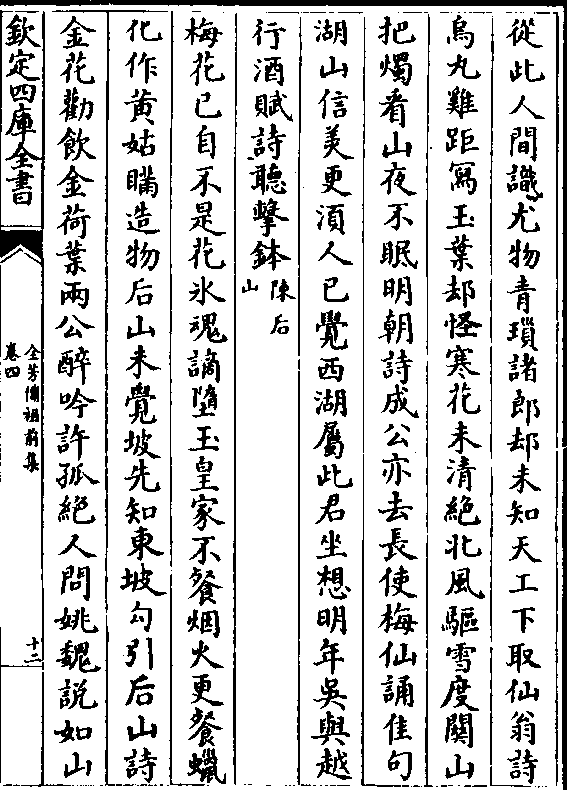 從此人間識尤物青瑣諸郎却未知天工下取仙翁詩
烏丸雞距寫玉葉却怪寒花未清絶北風驅雪度關山
把燭看山夜不眠明朝詩成公亦去長使梅仙誦佳句
湖山信美更湏人已覺西湖屬此君坐想明年吳與越
行酒賦詩聽擊鉢陳后山
梅花已自不是花氷魂謫墮玉皇家不餐烟火更餐蠟
化作黄姑瞞造物后山未覺坡先知東坡勾引后山詩
金花勸飲金荷葉兩公醉吟許孤絶人問姚魏說如山
欽定四庫全書
全芳備祖前集
卷四
十二